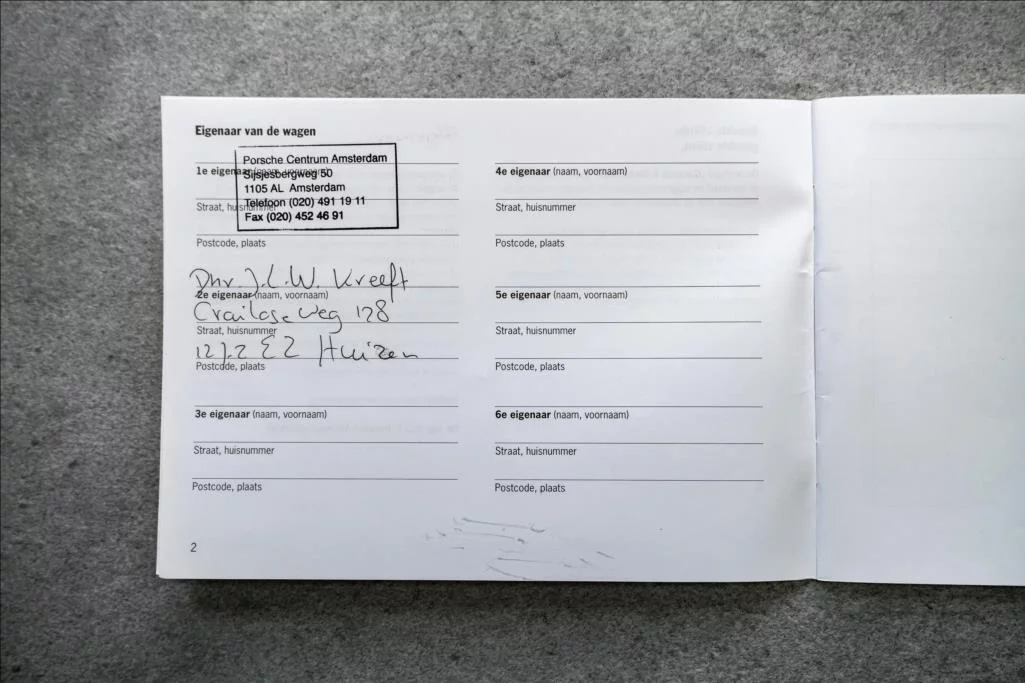 Eigenaar van de wagen
Porsche Centrum Amsterdam
1e eigenaar (naam, voornaam)
Sijsjesbergweg 50
1105 AL Amsterdam
Telefoon (020) 491 19 11
Straat, huisnummer
Fax (020) 452 46 91
Postcode, plaats
Dhr. J.C.W. Kreeft
2e eigenaar (naam, voornaam)
Crailoseweg 128
Straat, huisnummer
1272 EZ Huizen
Postcode, plaats
3e eigenaar (naam, voornaam)
Straat, huisnummer
Postcode, plaats
4e eigenaar (naam, voornaam)
Straat, huisnummer
Postcode, plaats
5e eigenaar (naam, voornaam)
Straat, huisnummer
Postcode, plaats
6e eigenaar (naam, voornaam)
Straat, huisnummer
Postcode, plaats
2